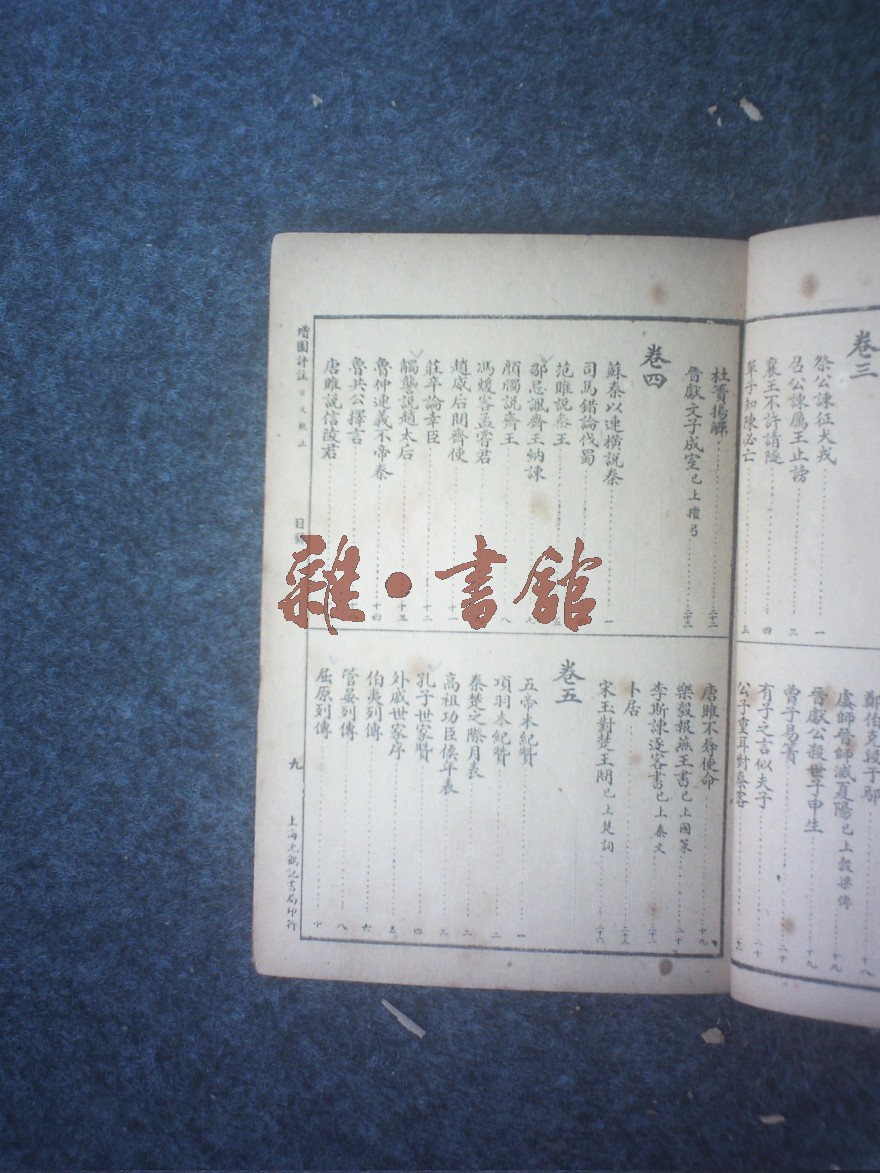 卷三
祭公諫征犬戎 一
召公諫厲王止謗 三
襄王不許請隧 四
單子知陳必亡 五
鄭伯克段于鄢 十八
虞師晉師滅夏陽已上穀梁傳 十九
晉獻公殺世子申生 十九
曾子易簀 二十
有子之言似夫子 二十
公子重耳對秦客 二十一
杜蕢揚觶 二十二
晉獻文子成室已上檀弓 二十三
卷四
蘇秦以連橫說秦 一
司馬錯論伐蜀
范雎說秦王
鄒忌諷齊王納諫
顏斶說齊王 八
馮煖客孟嘗君
趙威后問齊使 十一
莊辛論幸臣 十二
觸讋說趙太后 十三
魯仲連義不帝秦 十四
魯共公擇言
唐雎說信陵君
唐雎不辱使命 十九
樂毅報燕王書已上國策 二十
李斯諫逐客書已上秦文 二十二
卜居 二十五
宋玉對楚王問已上楚詞 二十六
卷五
五帝本紀贊 一
項羽本紀贊 二
秦楚之際月表 二
高祖功臣侯年表 三
孔子世家贊 四
外戚世家序 五
伯夷列傳 六
管晏列傳 八
屈原列傳 十
增圖評註古文觀止
目錄
九
上海沈鶴記書局印行
雜·書館